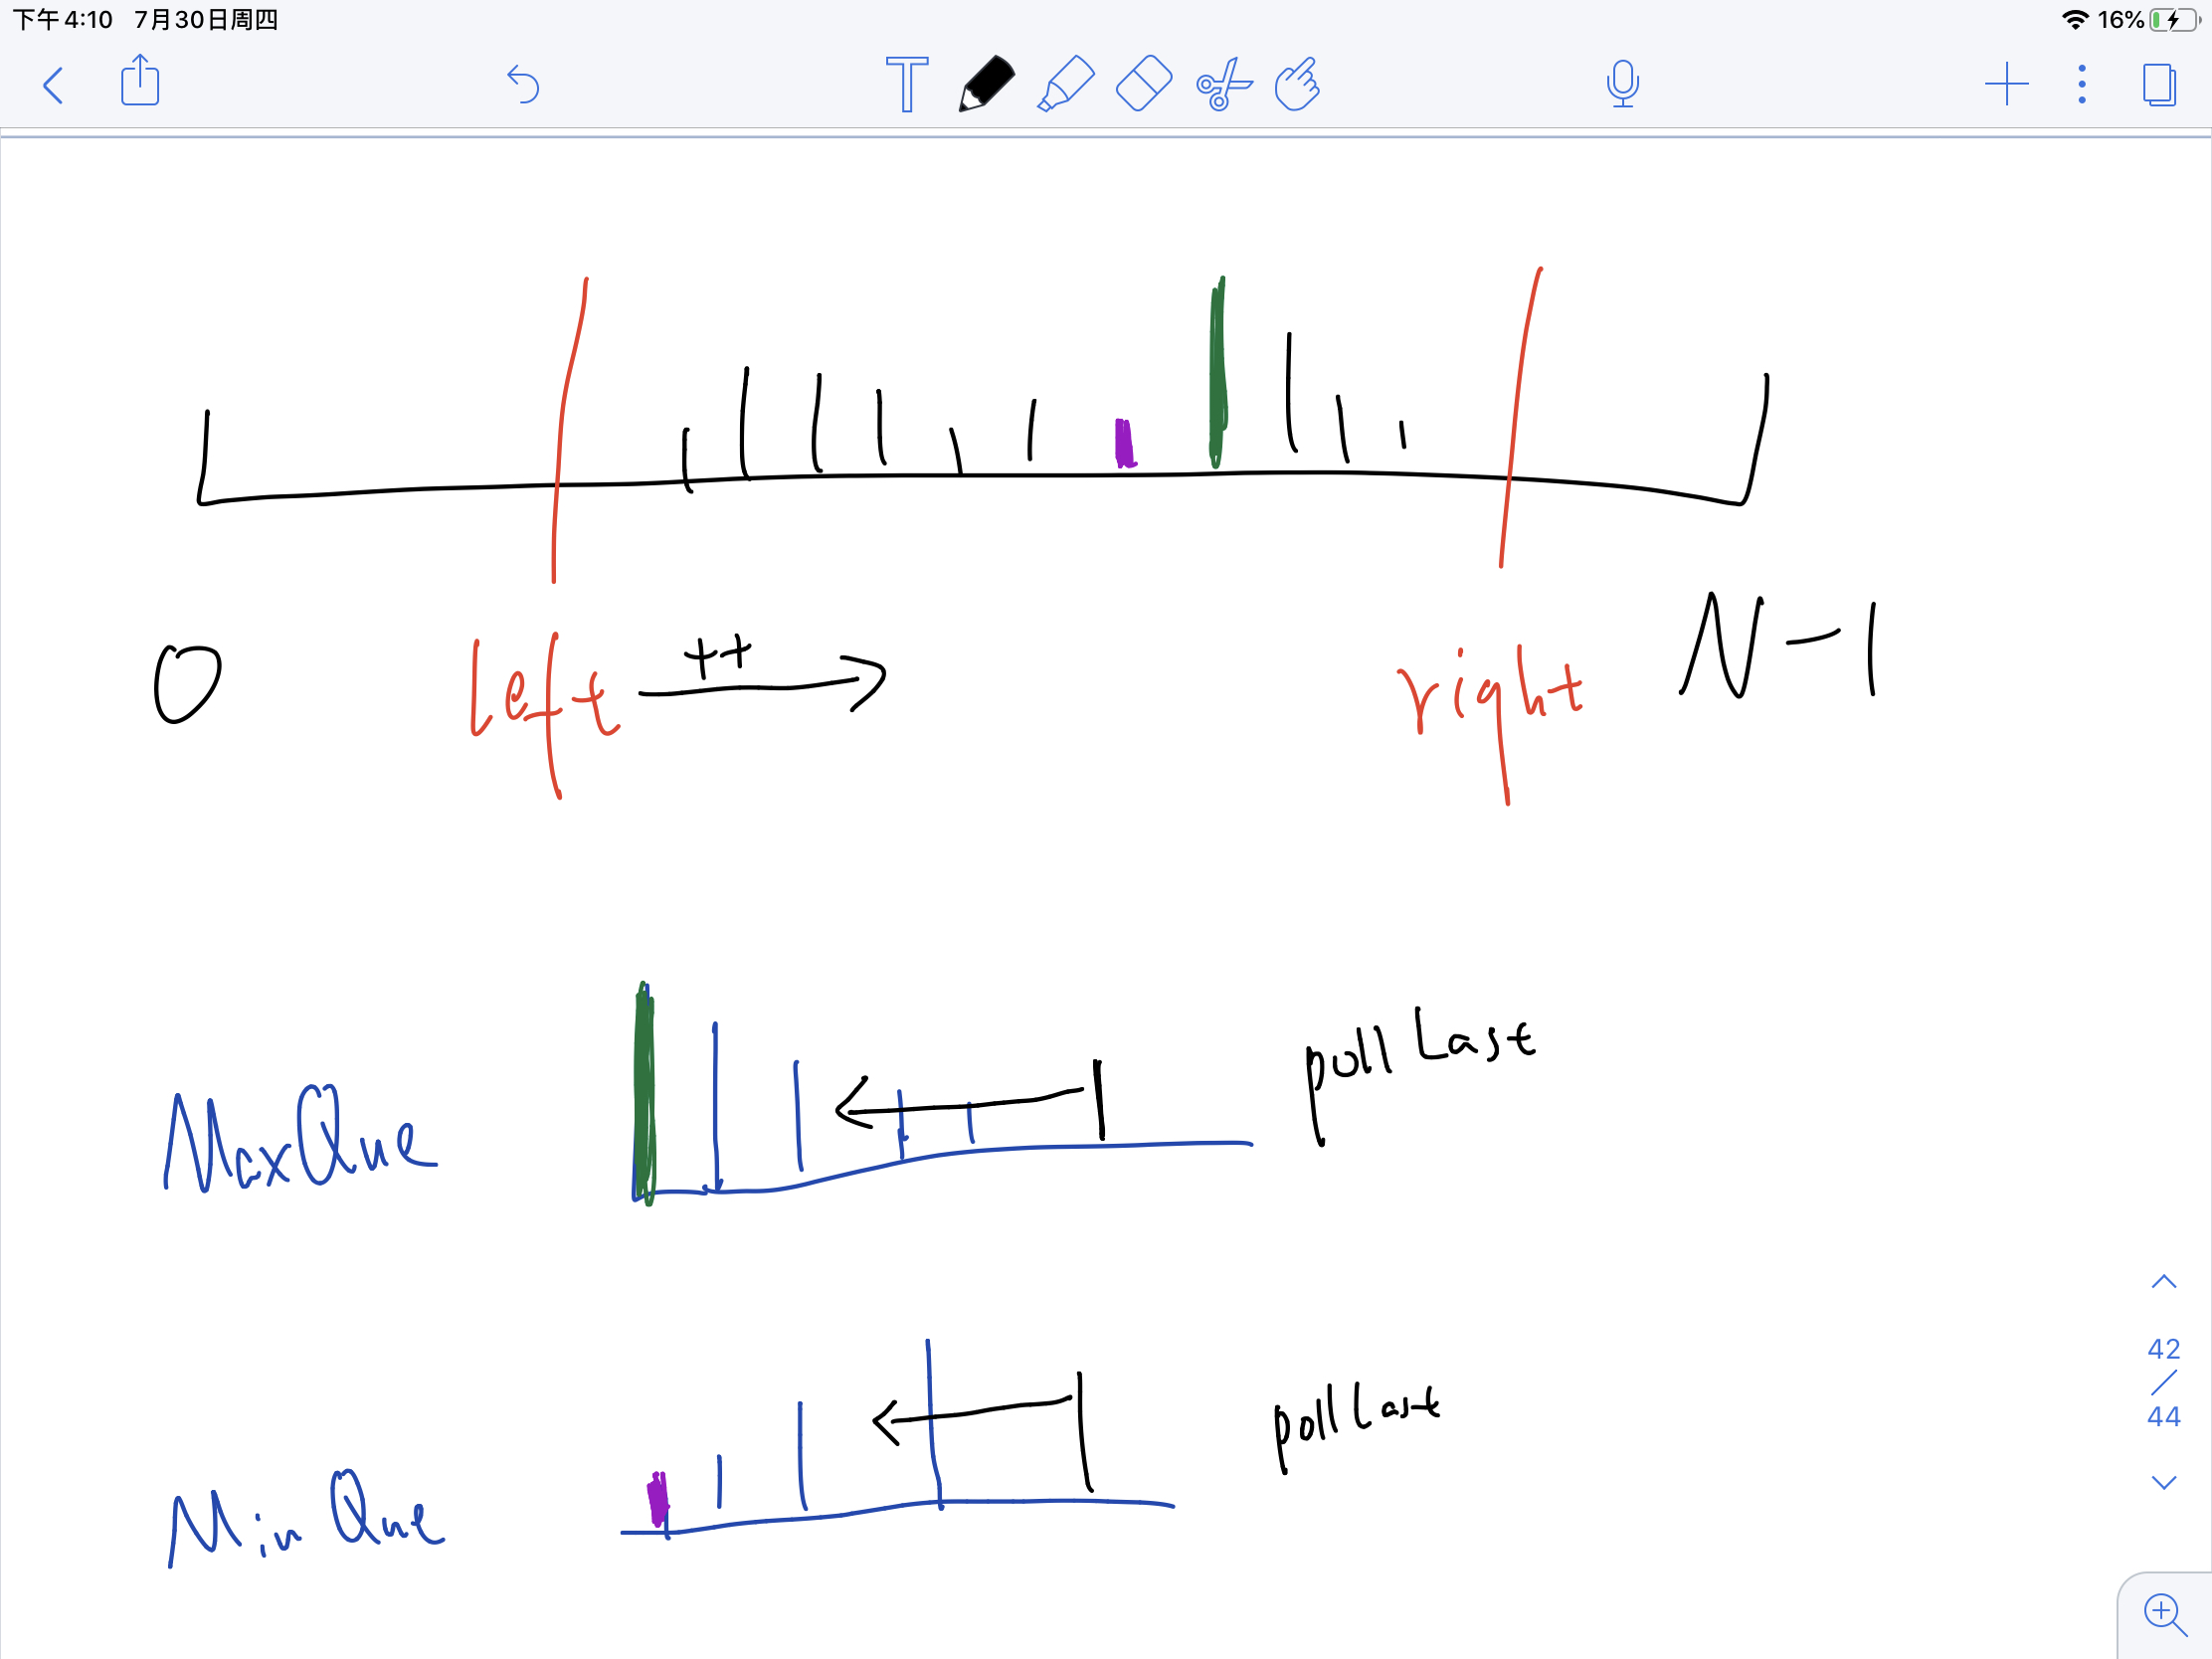 下午4:10 7月30日周四 16%
T
++
0 left right N-1
MaxQue pollLast
42
/
44
MinQue pollLast